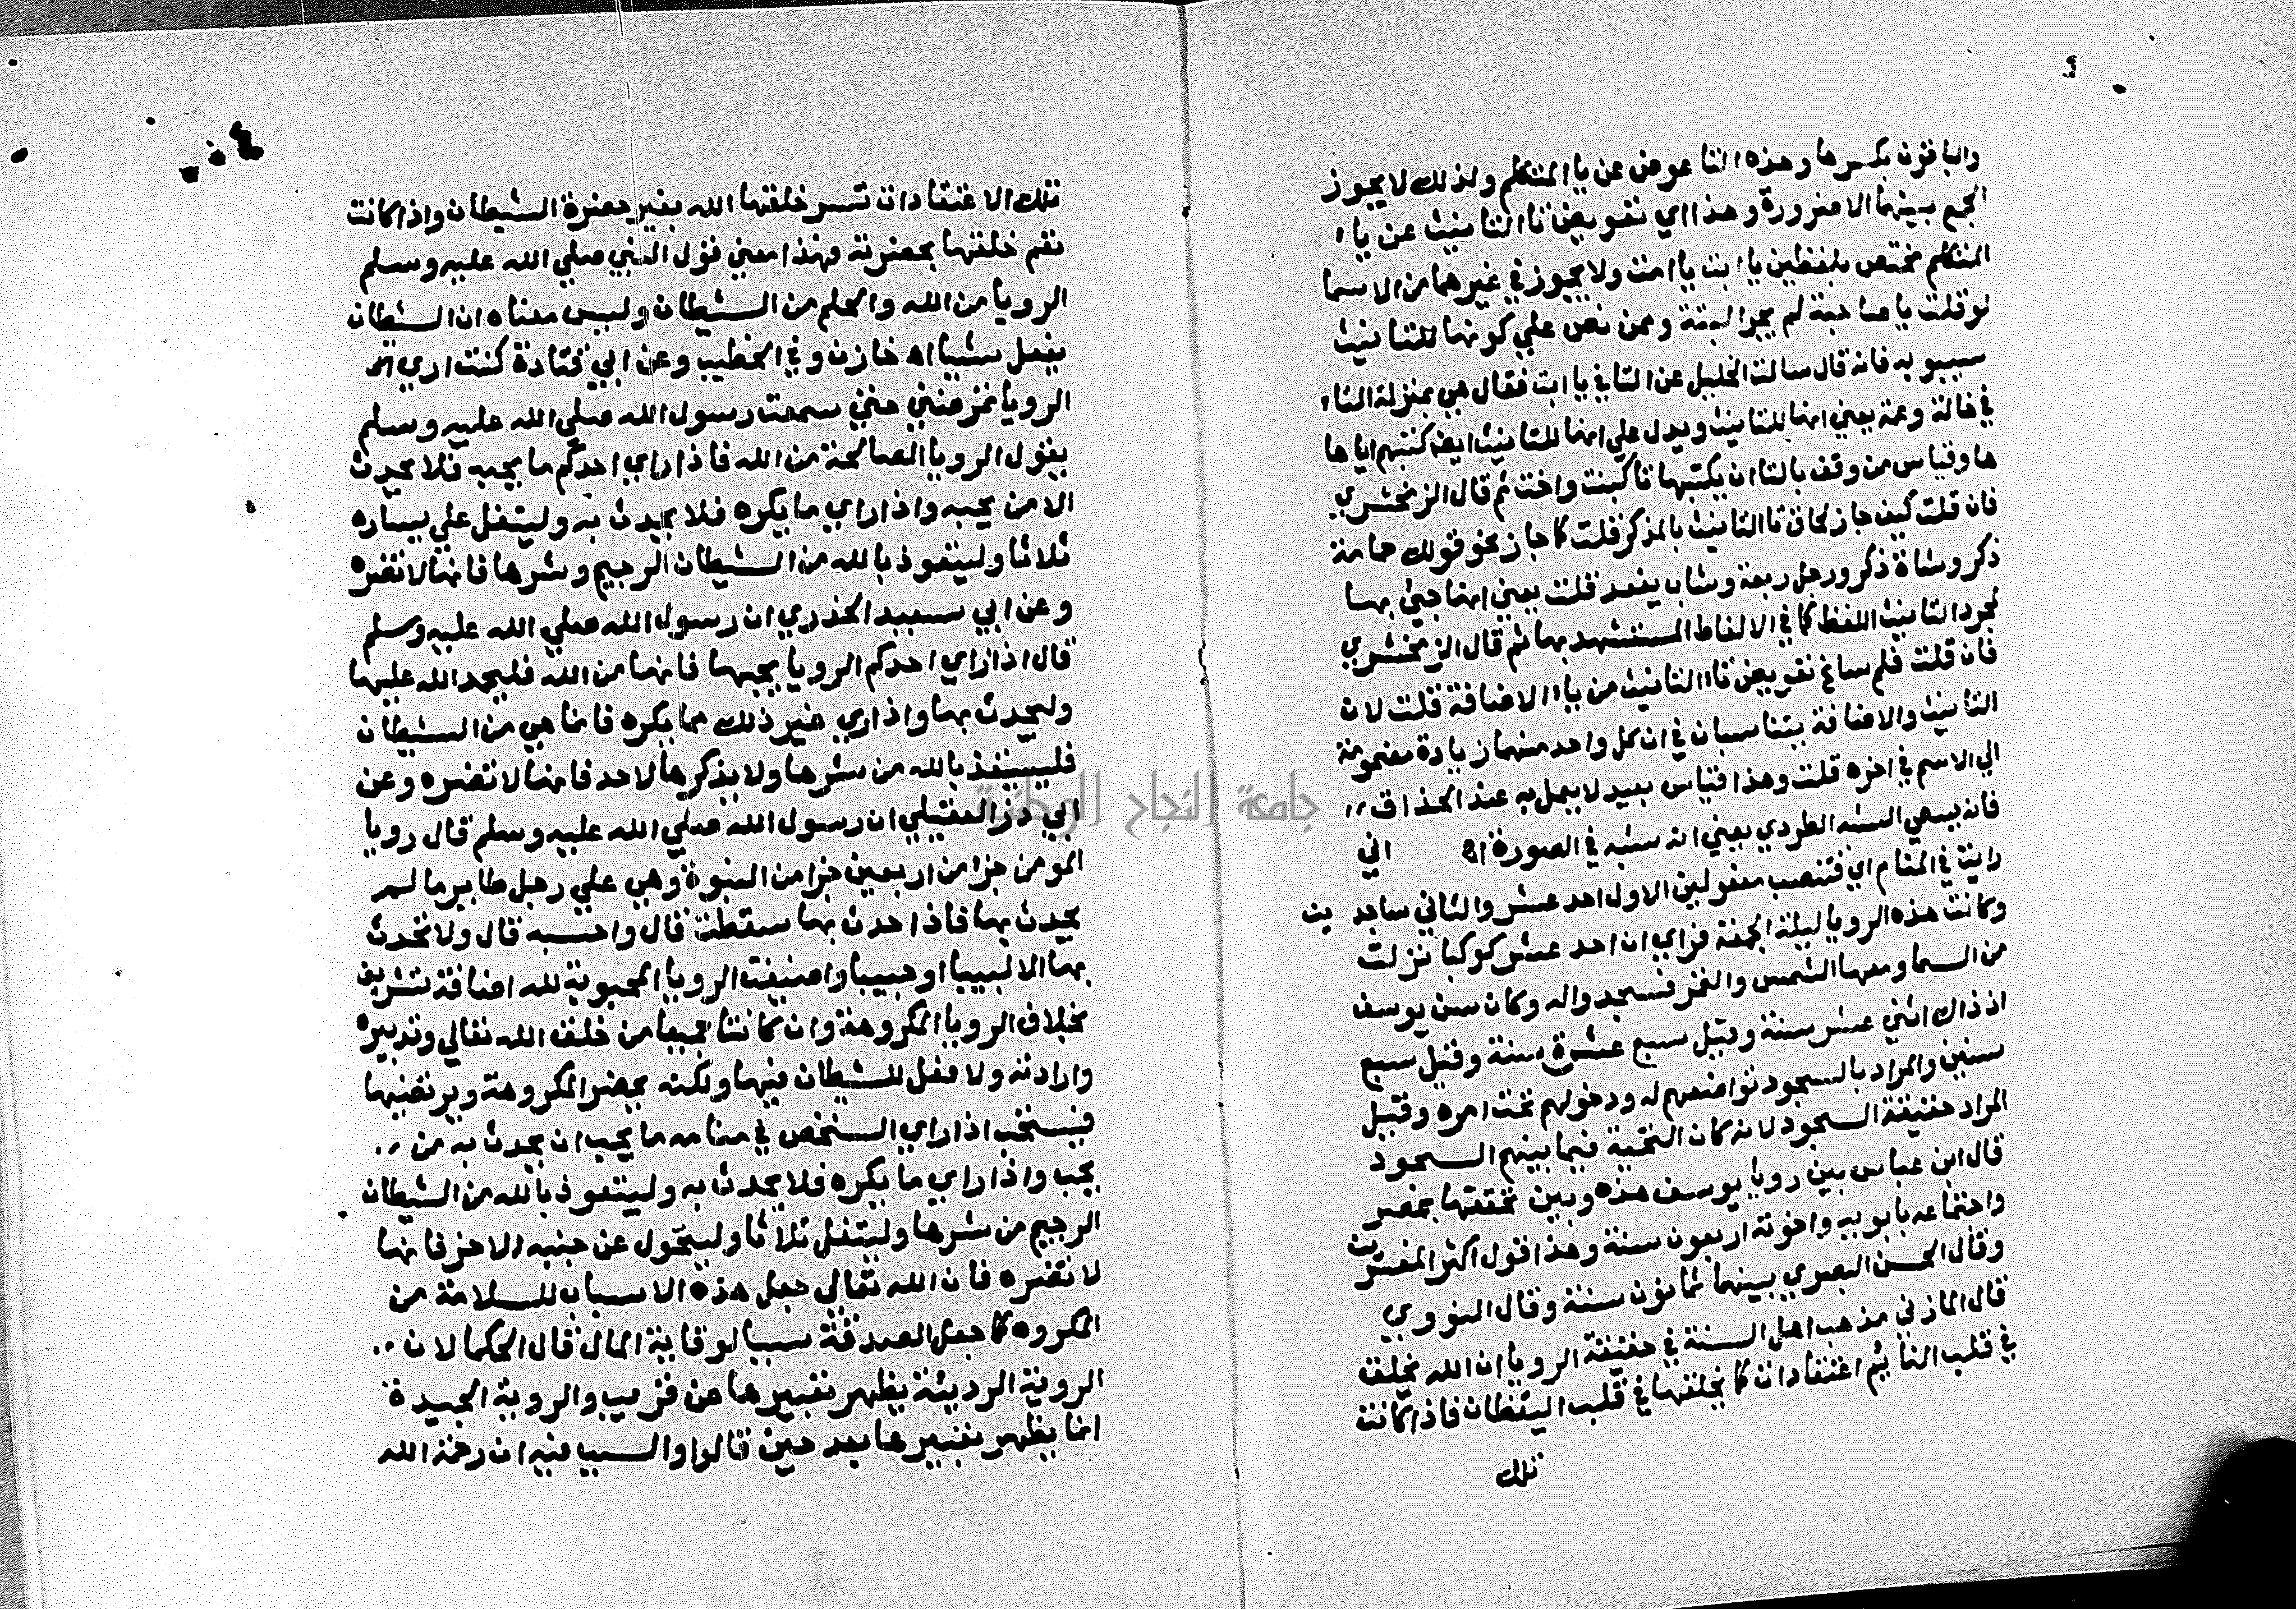 والباقون بكسرها وهذه التا عوض عن يا المتكلم ولذلك لا يجوز
الجمع بينهما الا ضرورة وهذا اي تعويض تا التانيث عن يا
المتكلم مختص بلفظين يا ابت يا امت ولا يجوز في غيرهما من الاسما
لو قلت يا صاحبة لم يجز البتة وممن نص علي كونها للتانيث
سيبويه فانه قال سالت الخليل عن التا في يا ابت فقال هي بمنزلة التاء
في خالة وعمة يعني انها للتانيث ويدل علي انها للتانيث ايضا كتبهم اياها
ها وقياس من وقف بالتا ان يكتبها تا كبنت واخت ثم قال الزمخشري
فان قلت كيف جاز لحاق تا التانيث بالمذكر قلت كما جاز نحو قولك حمامة
ذكر وشاة ذكر ورجل ربعة وشاب يفعة قلت يعني انها جيئ بها
لمجرد التانيث اللفظ كما في الالفاظ المستشهد بها ثم قال الزمخشري
فان قلت فلم ساغ تعويض تاء التانيث من ياء الاضافة قلت لان
التانيث والاضافة يتناسبان في ان كل واحد منهما زيادة مضمومة
الي الاسم في اخره قلت وهذا قياس بعيد لا يعمل به عند الحذاق
فانه يسمي الشبه الطردي يعني انه شبه في الصورة اه اني
رايت في المنام اي فتنصب مفعولين الاول احد عشر والثاني ساجدين
وكانت هذه الرويا ليلة الجمعة فراي ان احد عشر كوكبا نزلت
من السما ومعها الشمس والقمر فسجدوا له وكان سن يوسف
اذ ذاك اثني عشر سنة وقيل سبع عشرة سنة وقيل سبع
سنين والمراد بالسجود تواضعهم له ودخولهم تحت امره وقيل
المراد حقيقة السجود لانه كان التحية فيما بينهم السجود
قال ابن عباس بين رويا يوسف هذه وبين تحققها بمصر
واجتماعه بابويه واخوته اربعون سنة وهذا قول اكثر المفسرين
وقال الحسن البصري بينهما ثمانون سنة وقال النووي
قال المازني مذهب اهل السنة في حقيقة الرويا ان الله يخلق
في قلب النائم اعتقادات كما يخلقها في قلب اليقظان فاذا كانت
تلك
تلك الاعتقادات تسر خلقها الله بغير حضرة الشيطان واذا كانت
تغم خلقها بحضرته فهذا معني قول النبي صلي الله عليه وسلم
الرويا من الله والحلم من الشيطان وليس معناه ان الشيطان
يفعل شيا اه خازن وفي الخطيب وعن ابي قتادة كنت اري
الرويا تمرضني حتي سمعت رسول الله صلي الله عليه وسلم
يقول الرويا الصالحة من الله فاذا راي احدكم ما يحبه فلا يحدث
الا من يحبه واذا راي ما يكره فلا يحدث به وليتفل علي يساره
ثلاثا وليتعوذ بالله من الشيطان الرجيم وشرها فانها لا تضره
وعن ابي سعيد الخدري ان رسول الله صلي الله عليه وسلم
قال اذا راي احدكم الرويا يحبها فانها من الله فليحمد الله عليها
وليحدث بها واذا راي غير ذلك مما يكره فانما هي من الشيطان
فليستعذ بالله من شرها ولا يذكرها لاحد فانها لا تضره وعن
ابي ذر العقيلي ان رسول الله صلي الله عليه وسلم قال رويا
المومن جزا من اربعين جزا من النبوة وهي علي رجل طاير ما لم
يحدث بها فاذا حدث بها سقطت قال واحسبه قال ولا تحدث
بها الا لبيبا او حبيبا واضيفت الرويا المحبوبة لله اضافة تشريف
بخلاف الرويا المكروهة وان كانتا جميعا من خلق الله تعالي وتدبيره
وارادته ولا فعل للشيطان فيها ولكنه يحضر المكروهة ويرتضيها
فيستحب اذا راي الشخص في منامه ما يحب ان يحدث به من
يحب واذا راي ما يكره فلا يحدث به وليتعوذ بالله من الشيطان
الرجيم من شرها وليتفل ثلاثا وليتحول عن جنبه الاخر فانها
لا تضره فان الله تعالي جعل هذه الاسباب للسلامة من
المكروه كما جعل الصدقة سببا لوقاية المال قال الحكما لان
الروية الرديئة يظهر تعبيرها عن قريب والروية الجيدة
انما يظهر تعبيرها بعد حين قالوا والسبب فيه ان رحمة الله
جامعة النجاح الوطنية